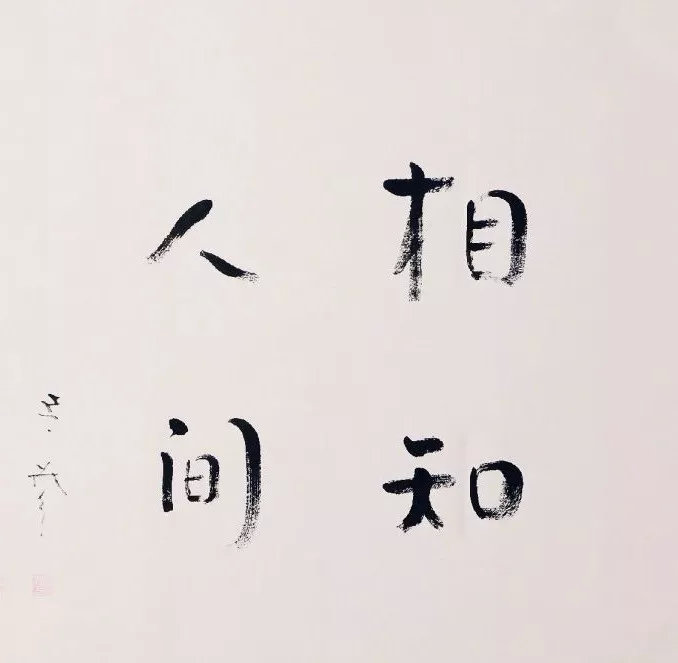 相知
人间